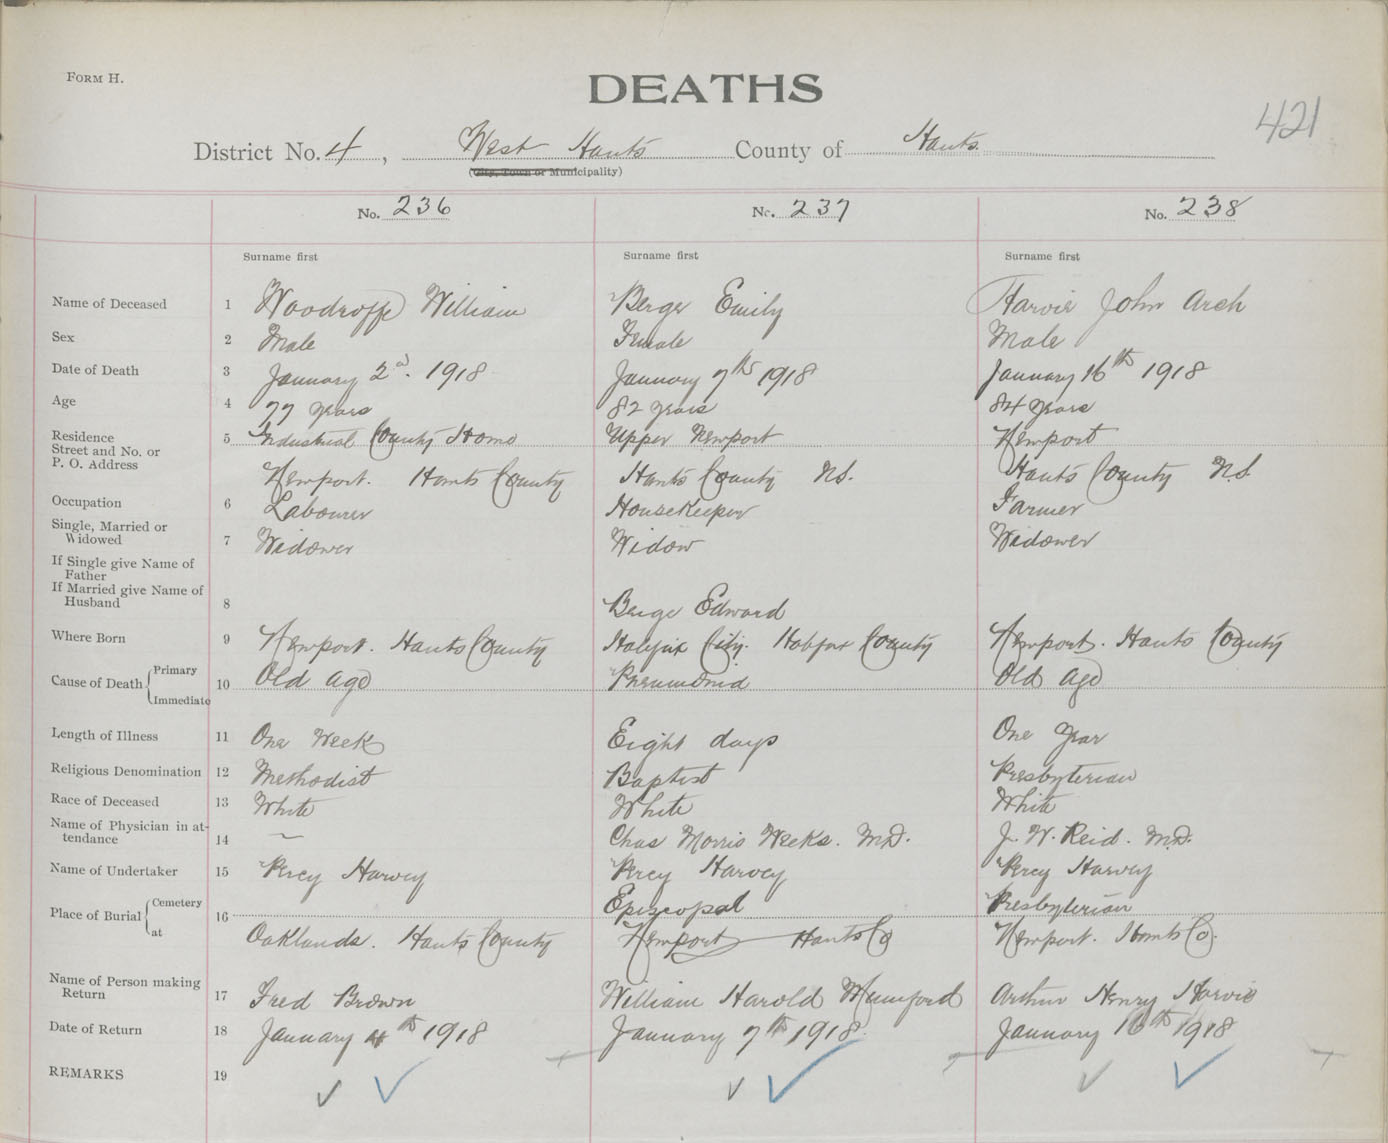 FORM H.
DEATHS
421
District No. 4, West Hants County of Hants
(City, Town or Municipality)
No. 236 No. 237 No. 238
Surname first Surname first Surname first
Name of Deceased 1 Woodroffe William Berge Emily Harvie John Arch
Sex 2 Male Female Male
Date of Death 3 January 2d. 1918 January 7th 1918 January 16th 1918
Age 4 77 years 82 years 84 years
Residence 5 Industrial County Home Upper Newport Newport
Street and No. or
P. O. Address Newport. Hants County Hants County N.S. Hants County N.S.
Occupation 6 Labourer Housekeeper Farmer
Single, Married or
Widowed 7 Widower Widow Widower
If Single give Name of
Father
If Married give Name of
Husband 8 Berge Edward
Where Born 9 Newport. Hants County Halifax City. Halifax County Newport. Hants County
Cause of Death Primary 10 Old Age Pneumonia Old Age
Immediate
Length of Illness 11 One Week Eight days One Year
Religious Denomination 12 Methodist Baptist Presbyterian
Race of Deceased 13 White White White
Name of Physician in at-
tendance 14 — Chas Morris Weeks. M.D. J. W. Reid. M.D.
Name of Undertaker 15 Percy Harvey Percy Harvey Percy Harvey
Place of Burial Cemetery 16 Episcopal Presbyterian
at Oaklands. Hants County Newport Hants Co Newport. Hants Co.
Name of Person making
Return 17 Fred Brown William Harold Mumford Arthur Henry Harvie
Date of Return 18 January 4th 1918 January 7th 1918. January 16th 1918
REMARKS 19